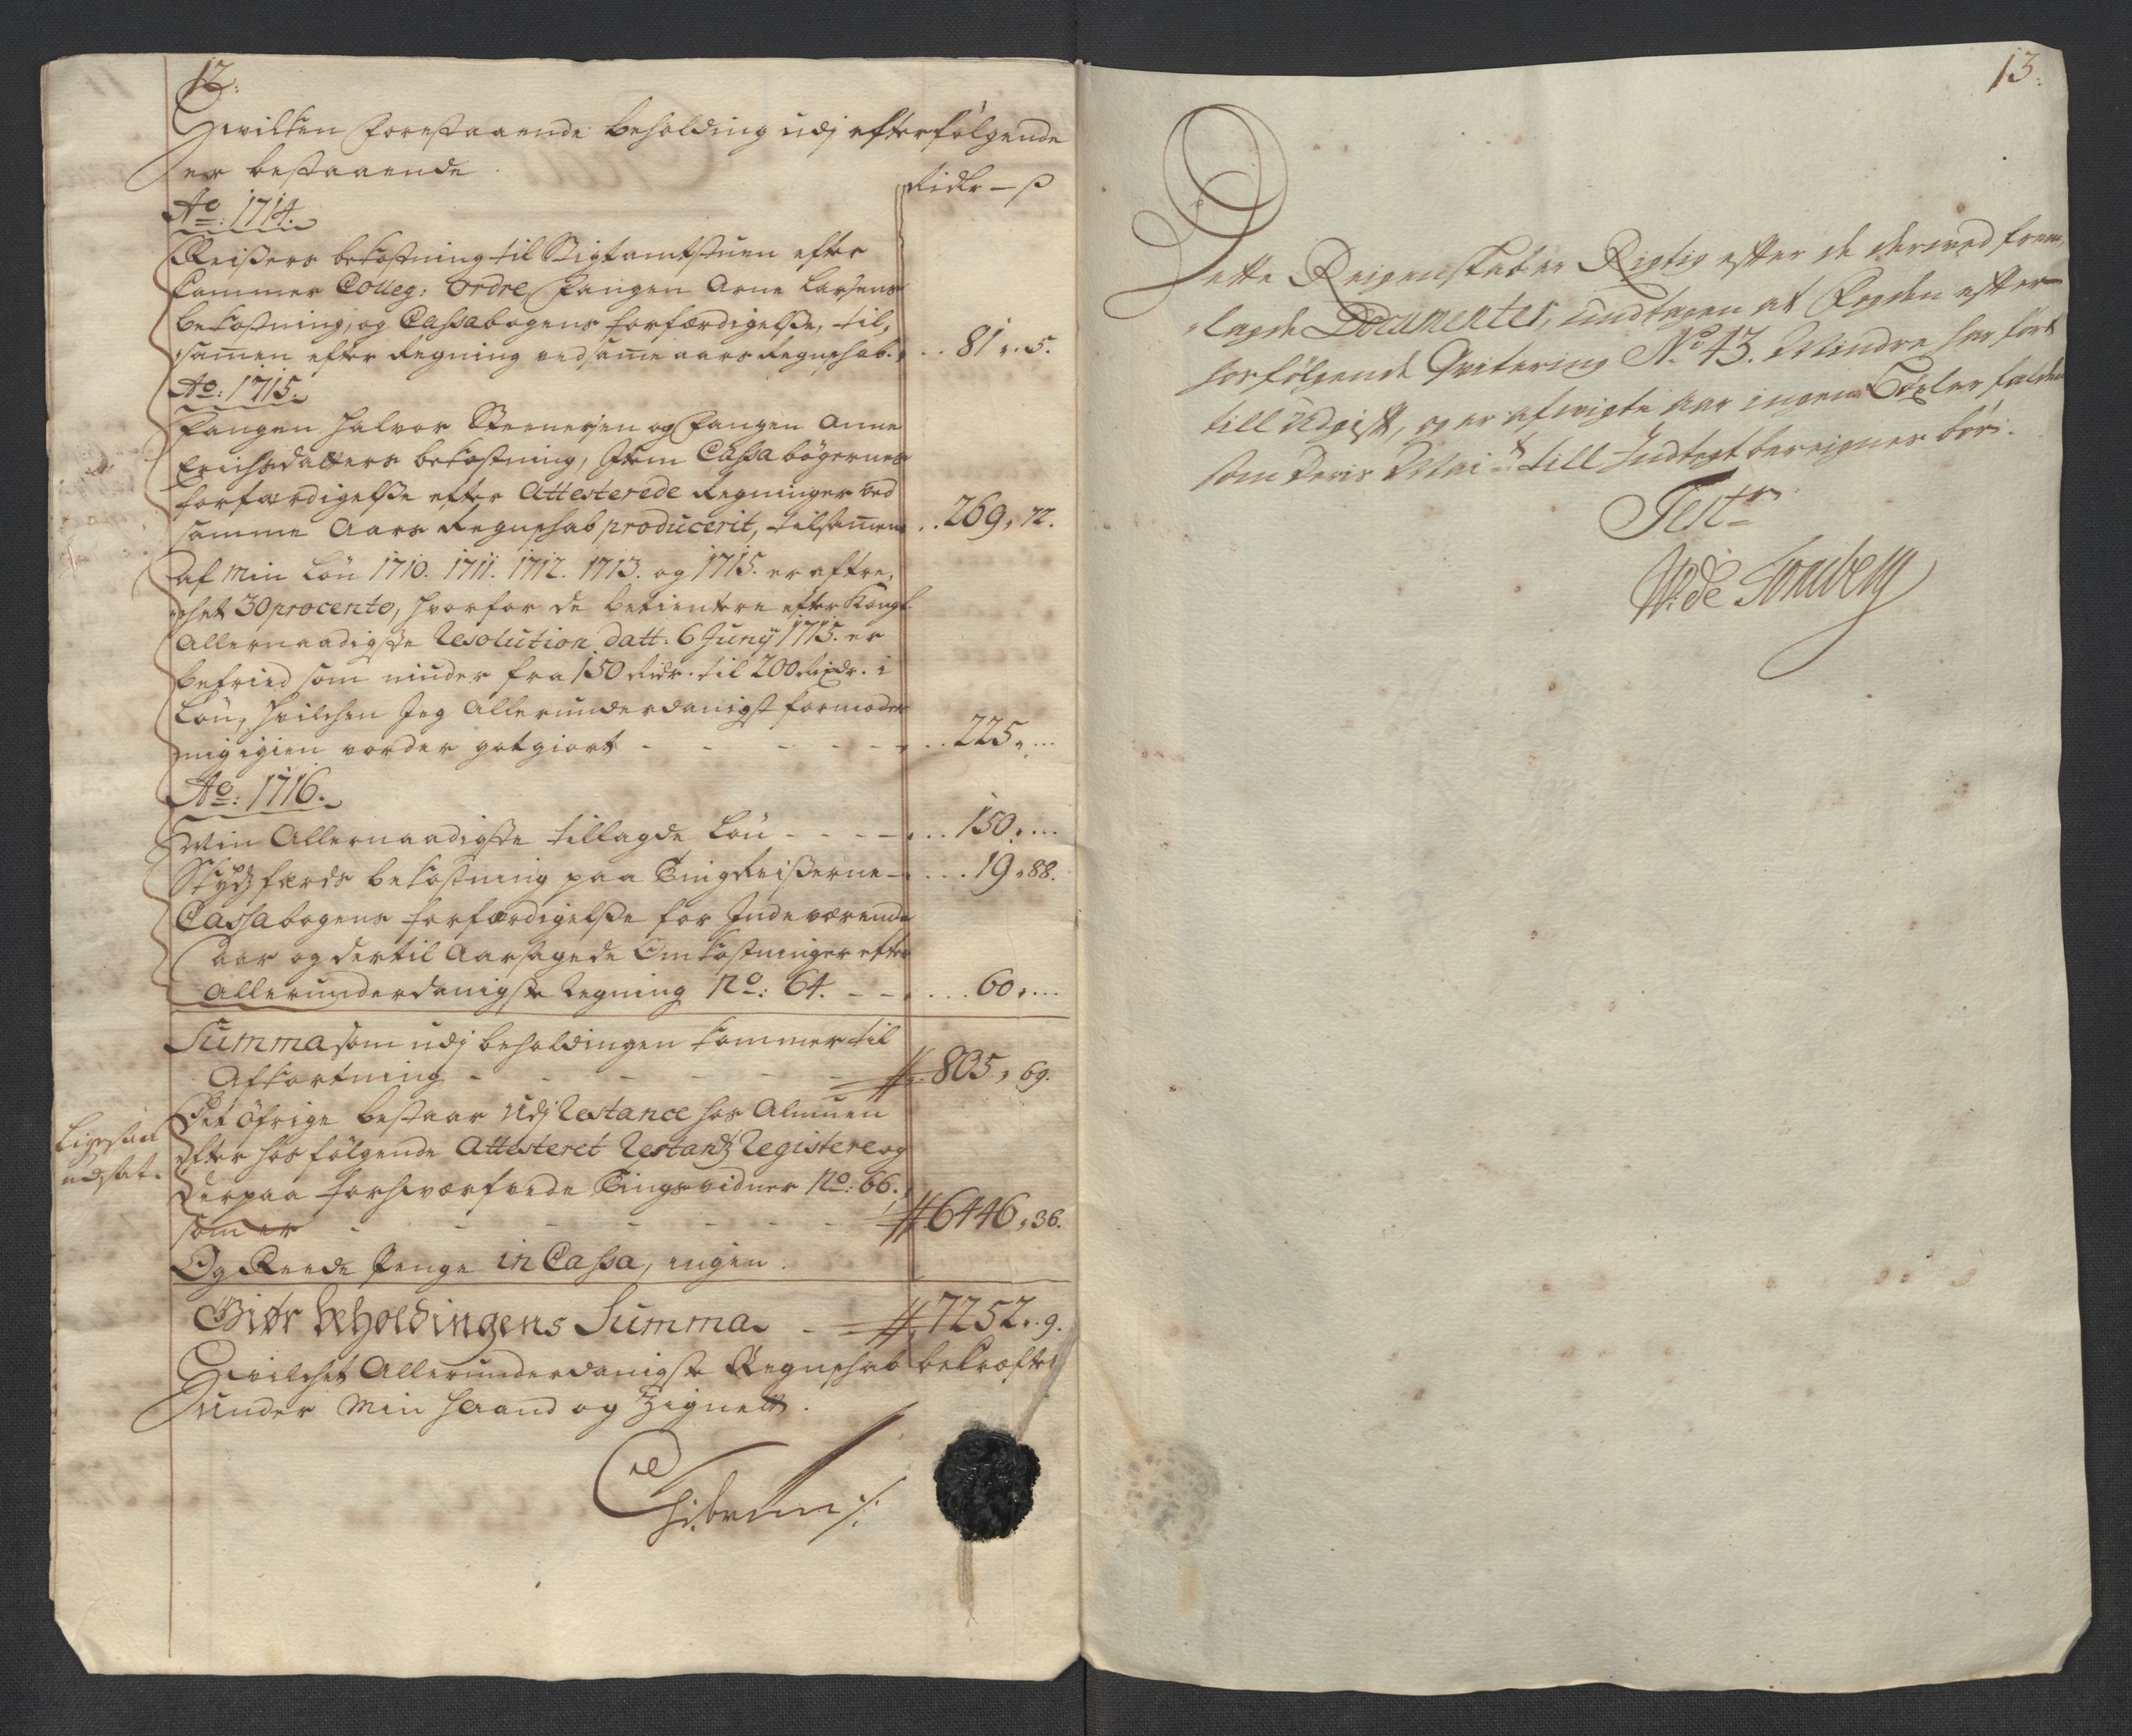 12.
Hvilken forestaaende beholding udj efterfølgende
er bestaaende.
Ridlr — ß
Ao: 1714.
Reißers bekostning til Stigtamtstuen efter
Cammer Colleg: Ordre, fangen Arne Larsens
bekostning, og Cassabogens forfærdigelße, til,
samen efter Regning ved same aars Regnschab. 81 „ 5.
Ao: 1715.
Fangen Halvor Steenersen og fangen Anne
Erichsdatters bekostning, Item Cassa bøgernes
forfærdigelße efter Attesterede Regninger ved
samme Aars Regnschab producerit, tilsamen 269 „ 72.
Af min Løn 1710. 1711. 1712. 1713. og 1715. er aftre,
chet 30 procento, hvorfor de betientere efter Kongl.
Allernaadigste Resolution datt: 6 Juny 1715. er
befried som niuder fra 150 Rdr. til 200 Rixdr. i
Løn, hvilchen Jeg Allerunderdanigst formoder
mig igien vorder got giort - - - - 225 „ ...
Ao: 1716.
Min Allernaadigste tillagde Løn - - - - 150 „ ...
Skydsfærds bekostning paa Tingreißerne - 19 „ 88.
Cassabogens forfærdigelße for Indeværende
Aar og dertil Aarsagede Omkostninger efter
Allerunderdanigste Regning No: 64. - - 60 „ ...
Summa som udj beholdingen kommer til
Afkortning - - - - - # 805 „ 69.
Det øfrige bestaar udj Restance hos Almuen
efter hosfølgende Attesteret Restantz Registere og
derpaa forhværfvede Tingsvidner No: 66.
som er - - - - - # 6446 „ 36.
Ligesaa
udsat.
Og Reede Penge in Cassa, ingen.
Giør beholdingens Summa - # 7252 „ 9.
Hvilchet Allerunderdanigste Regnschab bekræfter
under min Haand og Zignett.
13.
Dette Reigenskab er Rigtig efter de dermed frem,
lagde Documenter, undtagen at Fogden efter
hosfølgende Qvitering No 43. Mindre har ført
till Udgift, og er afvigte aar ingen Odeler falden
som Deris Maits till Indtegt bereignes bør.
Testr
W: de Tonsberg